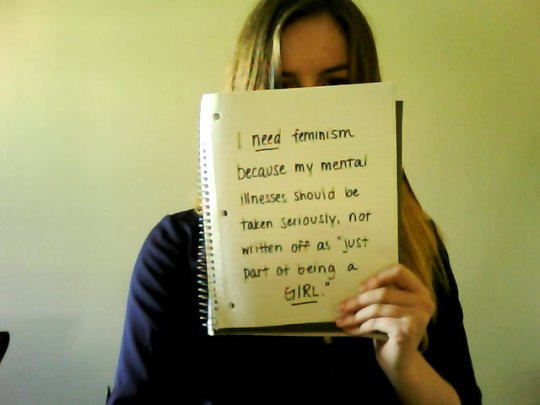 I need feminism
because my mental
illnesses should be
taken seriously, not
written off as "just
part of being a
GIRL."